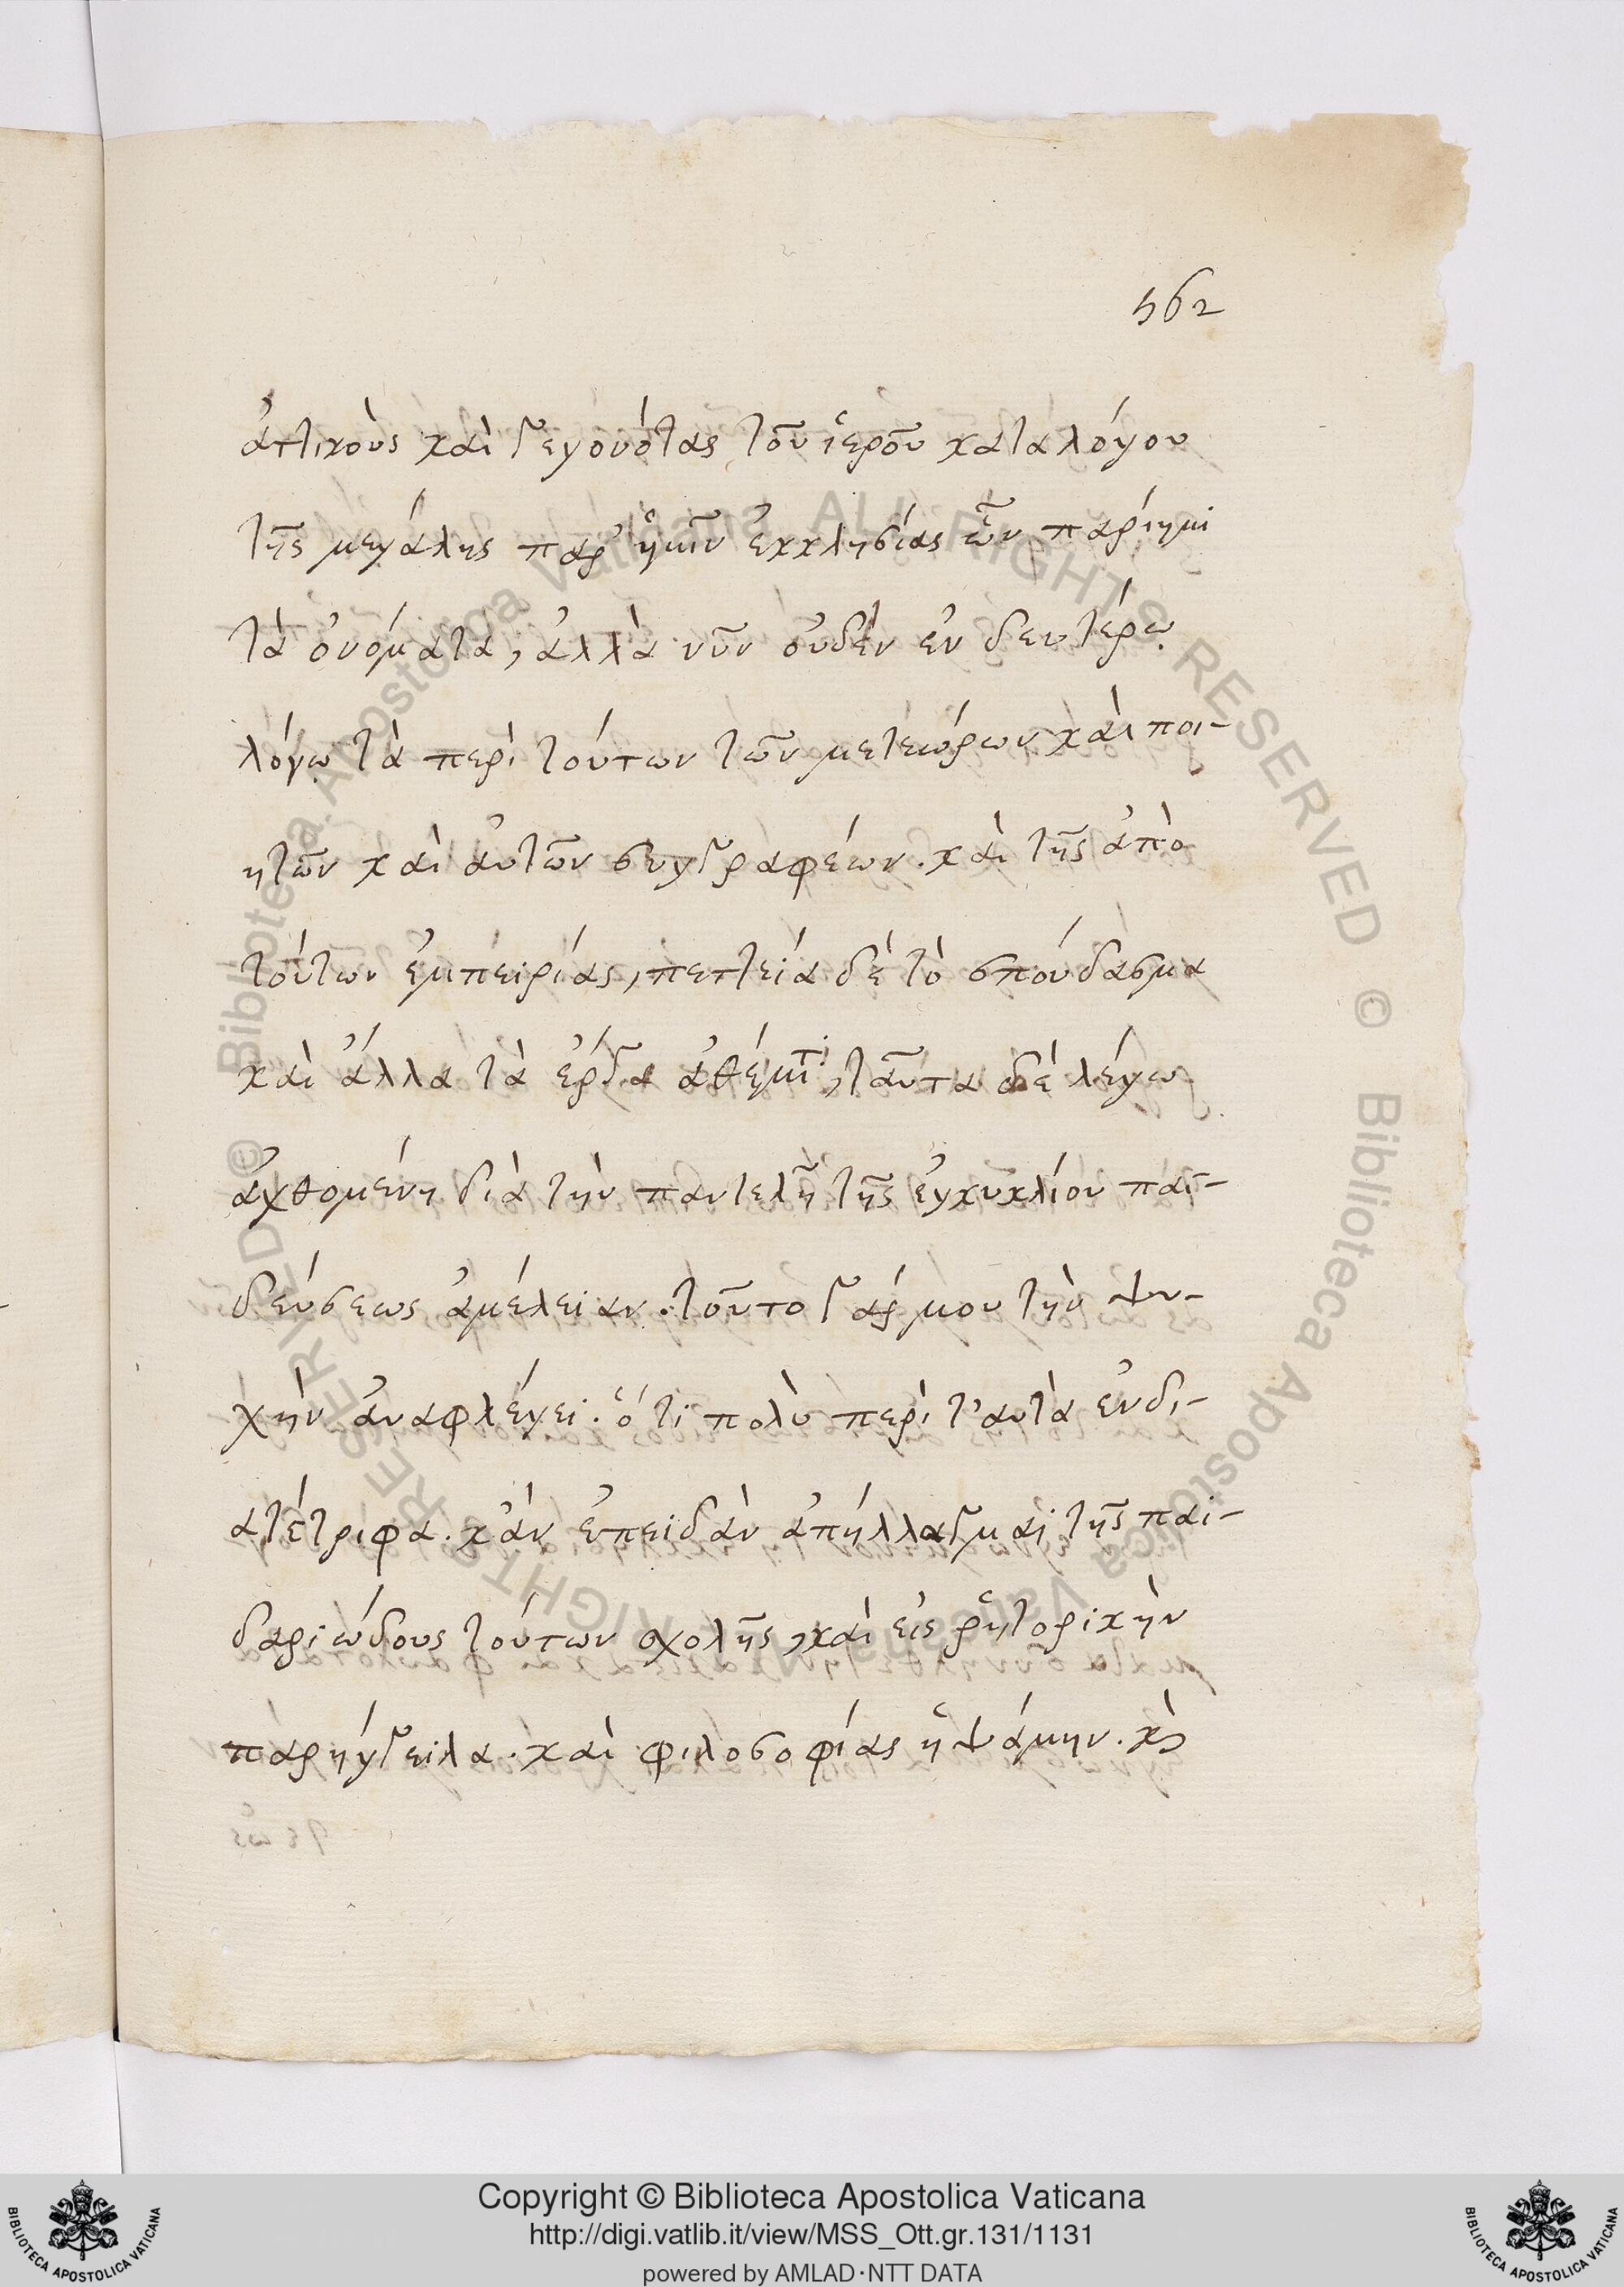 562
ἀττικοὺς καὶ γεγονότας τοῦ ἱεροῦ καταλόγου
τῆς μεγάλης παρ' ἡμῖν ἐκκλησίας ὧν παρίημι
τὰ ὀνόματα, ἀλλὰ νῦν οὐδὲν ἐν δευτέρῳ
λόγῳ τὰ περὶ τούτων τῶν μετεώρων καὶ ποι-
ητῶν καὶ αὐτῶν συγγραφέων. καὶ τῆς ἀπὸ
τούτων ἐμπειρίας, πεττεία δὲ τὸ σπούδασμα
καὶ ἄλλα τὰ ἔργα ἀθέμιτ, ταῦτα δὲ λέγω
ἀχθομένη διὰ τὴν παντελῆ τῆς ἐγκυκλίου παι-
δεύσεως ἀμέλειαν. τοῦτο γάρ μου τὴν ψυ-
χὴν ἀναφλέγει. ὅτι πολὺ περὶ τ'αυτὰ ἐνδι-
ατέτριφα. κἂν ἐπειδὰν ἀπήλλαγμαι τῆς παι-
δαριώδους τούτων σχολῆς, καὶ εἰς ῥητορικὴν
παρήγγειλα. καὶ φιλοσοφίας ἡψάμην. κὶ
Copyright © Biblioteca Apostolica Vaticana
http://digi.vatlib.it/view/MSS_Ott.gr.131/1131
powered by AMLAD·NTT DATA
BIBLIOTECA APOSTOLICA VATICANA
BIBLIOTECA APOSTOLICA VATICANA
© Biblioteca Apostolica Vaticana ALL RIGHTS RESERVED © Biblioteca Apostolica Vaticana ALL RIGHTS RESERVED